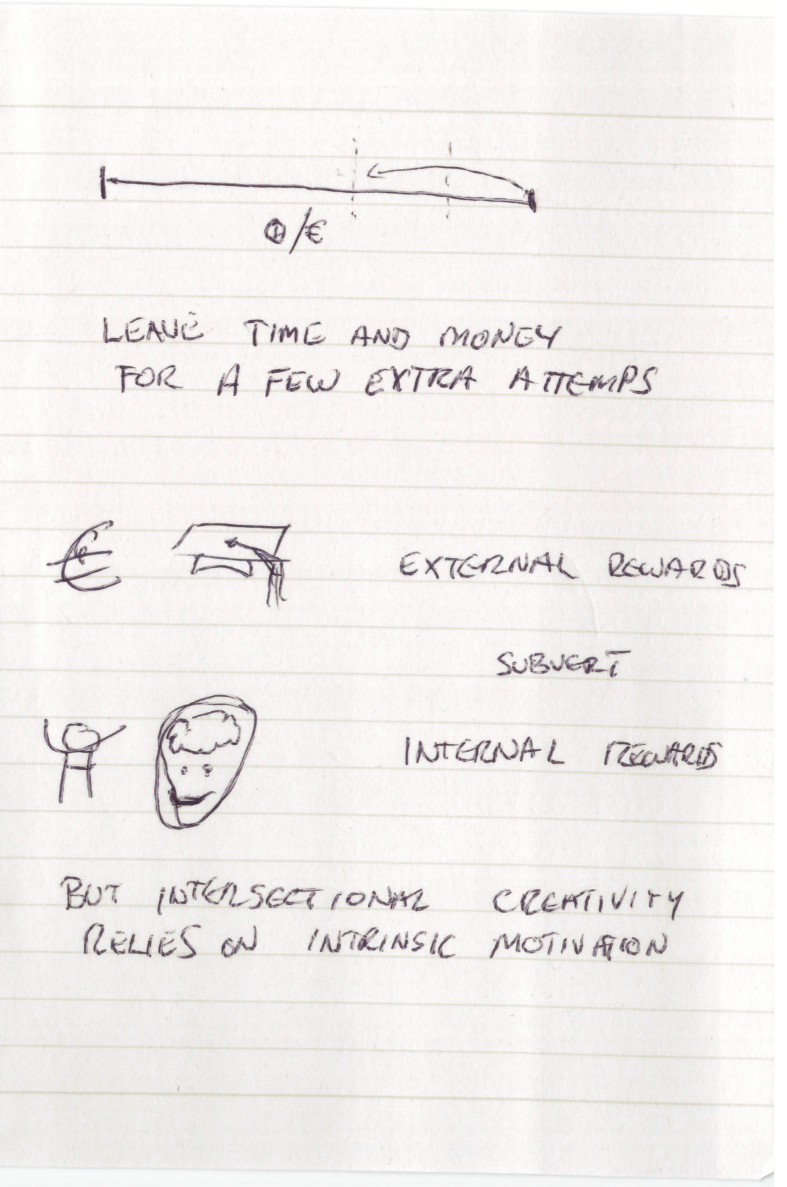 /€
LEAVE TIME AND MONEY
FOR A FEW EXTRA ATTEMPS
€
EXTERNAL REWARDS
SUBVERT
INTERNAL REWARDS
BUT INTERSECTIONAL CREATIVITY
RELIES ON INTRINSIC MOTIVATION